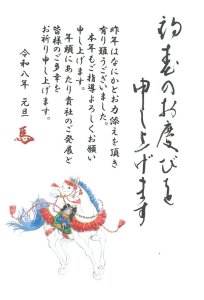 初春のお慶びを
申し上げます
昨年はなにかとお力添えを頂き
有り難うございました。
本年もご指導よろしくお願い
申し上げます。
年頭にあたり貴社のご発展と
皆様のご多幸を
お祈り申し上げます。
令和八年 元旦
馬